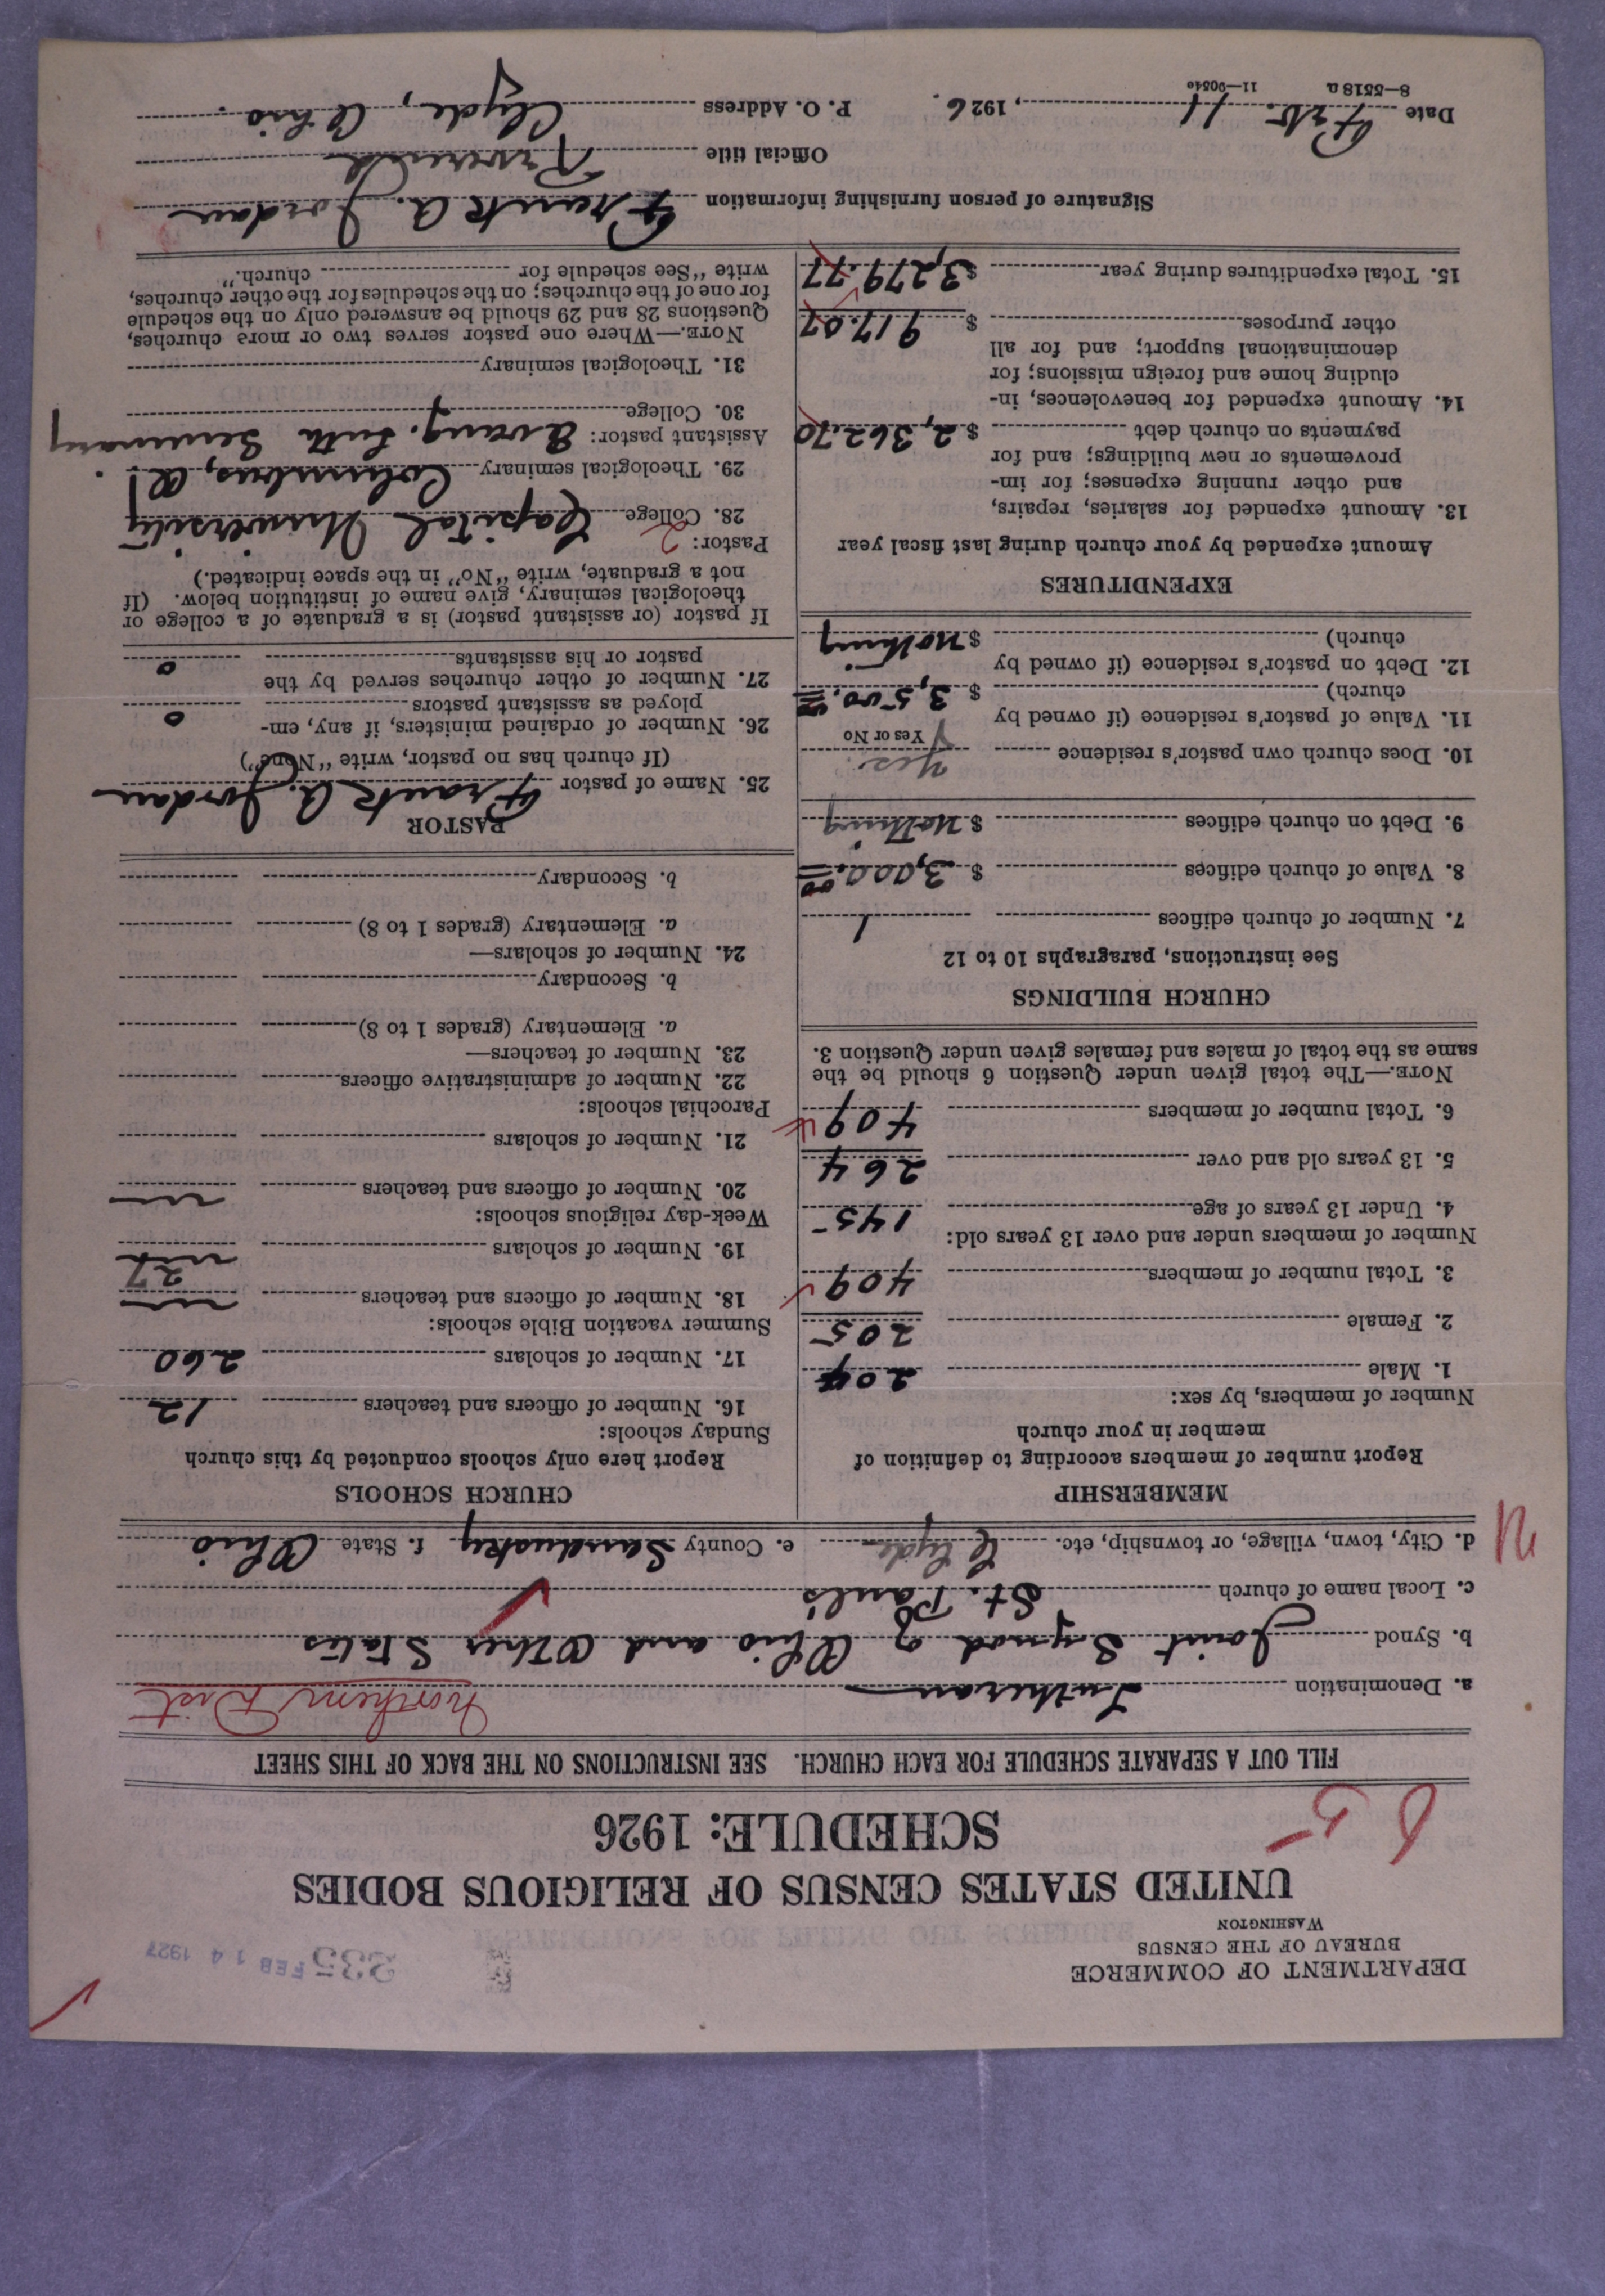 DEPARTMENT OF COMMERCE
BUREAU OF THE CENSUS
WASHINGTON
235 FEB 14 1927
UNITED STATES CENSUS OF RELIGIOUS BODIES
SCHEDULE: 1926
FILL OUT A SEPARATE SCHEDULE FOR EACH CHURCH. SEE INSTRUCTIONS ON THE BACK OF THIS SHEET
a. Denomination Lutheran Northern Dist
b. Synod Joint Synod of Ohio and Other States
c. Local name of church St. Paul's
d. City, town, village, or township, etc. Clyde e. County Sandusky f. State Ohio
MEMBERSHIP
Report number of members according to definition of
member in your church
Number of members, by sex:
1. Male 204
2. Female 205
3. Total number of members 409
Number of members under and over 13 years old:
4. Under 13 years of age 145
5. 13 years old and over 264
6. Total number of members 409
NOTE.—The total given under Question 6 should be the
same as the total of males and females given under Question 3.
CHURCH BUILDINGS
See instructions, paragraphs 10 to 12
7. Number of church edifices 1
8. Value of church edifices $ 3,000.00
9. Debt on church edifices $ Nothing
10. Does church own pastor's residence Yes.
Yes or No
11. Value of pastor's residence (if owned by
church) $ 3,500.00
12. Debt on pastor's residence (if owned by
church) $ Nothing
EXPENDITURES
Amount expended by your church during last fiscal year
13. Amount expended for salaries, repairs,
and other running expenses; for im-
provements or new buildings; and for
payments on church debt $ 2,362.70
14. Amount expended for benevolences, in-
cluding home and foreign missions; for
denominational support; and for all
other purposes $ 917.07
15. Total expenditures during year $ 3,279.77
CHURCH SCHOOLS
Report here only schools conducted by this church
Sunday schools:
16. Number of officers and teachers 12
17. Number of scholars 260
Summer vacation Bible schools:
18. Number of officers and teachers
19. Number of scholars 27
Week-day religious schools:
20. Number of officers and teachers
21. Number of scholars
Parochial schools:
22. Number of administrative officers
23. Number of teachers—
a. Elementary (grades 1 to 8)
b. Secondary
24. Number of scholars—
a. Elementary (grades 1 to 8)
b. Secondary
PASTOR
25. Name of pastor Frank A. Jordan
(If church has no pastor, write "None")
26. Number of ordained ministers, if any, em-
ployed as assistant pastors 0
27. Number of other churches served by the
pastor or his assistants 0
If pastor (or assistant pastor) is a graduate of a college or
theological seminary, give name of institution below. (If
not a graduate, write "No" in the space indicated.)
Pastor: 2
28. College Capital University
29. Theological seminary Columbus, O.
Assistant pastor: Evang. Luth Seminary
30. College
31. Theological seminary
NOTE.—Where one pastor serves two or more churches,
Questions 28 and 29 should be answered only on the schedule
for one of the churches; on the schedules for the other churches,
write "See schedule for church."
Signature of person furnishing information Frank A. Jordan
Official title Reverend
Date Feb. 11, 1926. P. O. Address Clyde, Ohio.
8—5518 a 11—90540